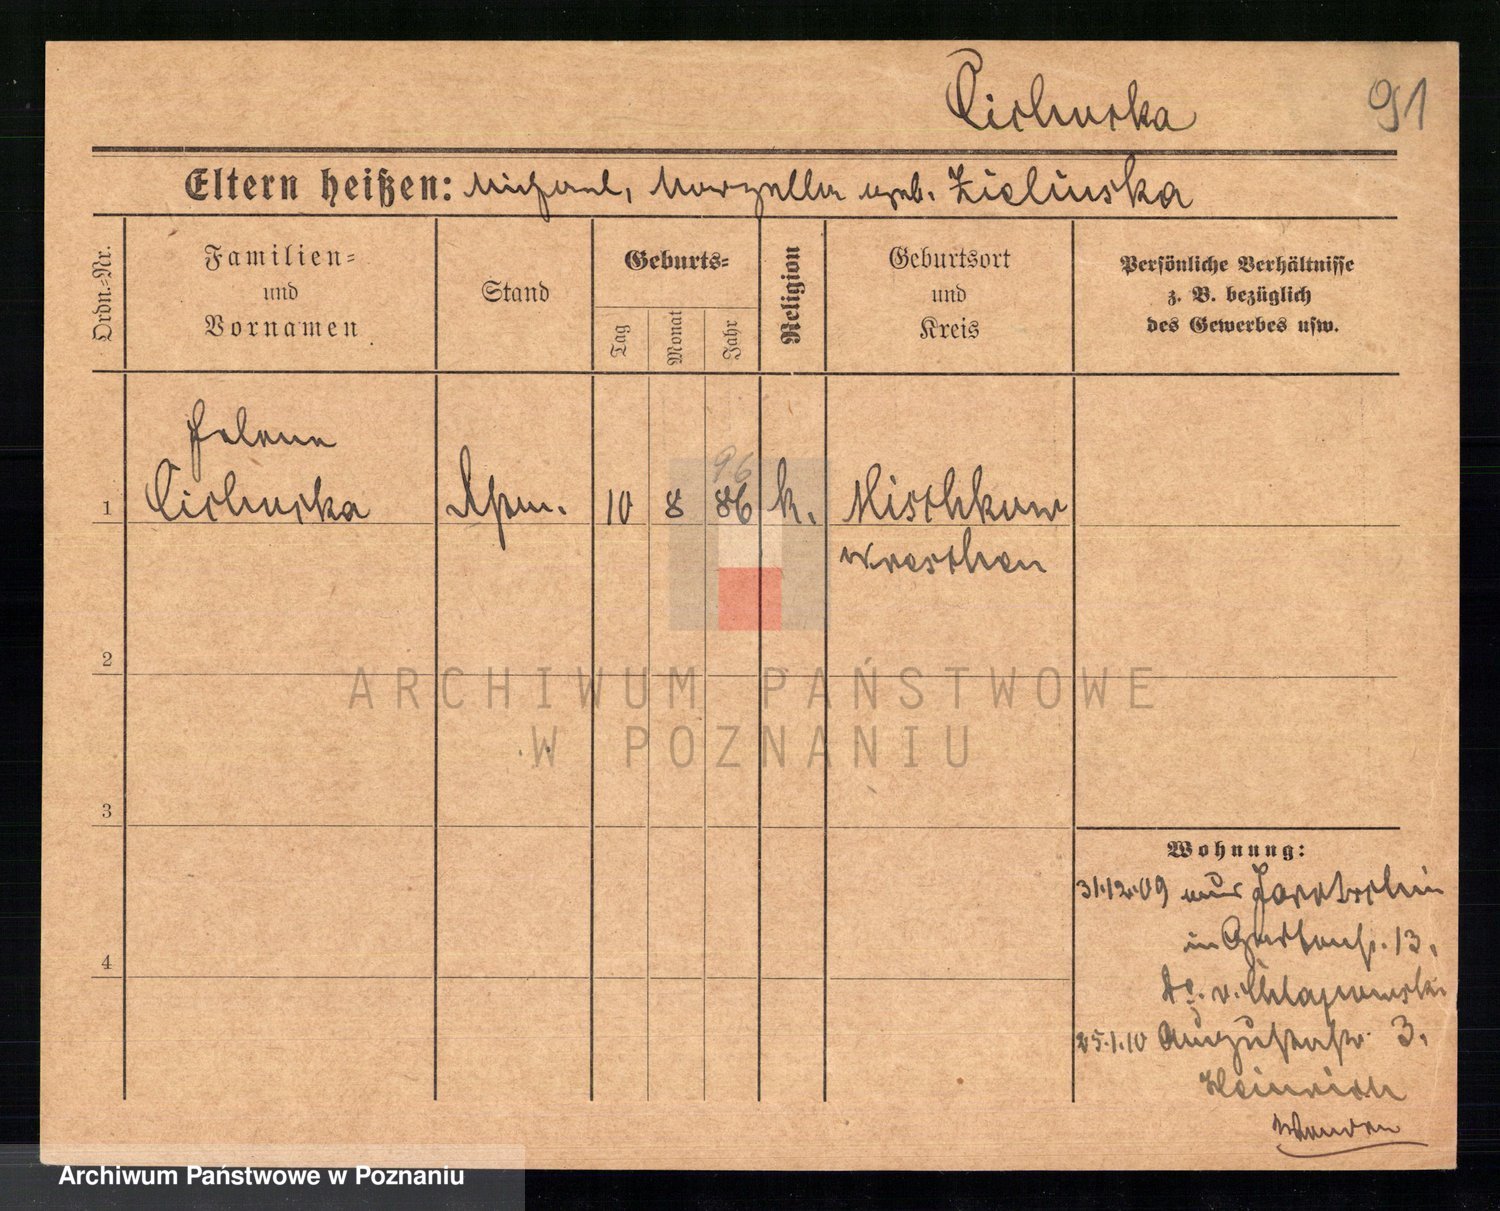 Cichurska
91
Eltern heißen: Michael, Marzella geb. Zielinska
Ordn.-Nr.
Familien-
und
Vornamen
Stand
Geburts-
Tag
Monat
Jahr
Religion
Geburtsort
und
Kreis
Persönliche Verhältnisse
z. B. bezüglich
des Gewerbes usw.
Helene
96
1 Cichurska 10 8 86 k. Mischkow
Wreschen
2
ARCHIWUM PAŃSTWOWE
W POZNANIU
3
Wohnung:
31.12.09 aus Jarotschin
in Gartenstr. 13.
v. Chlapowski
25.1.10 Augustastr. 3.
Heinrich
Wenden
4
Archiwum Państwowe w Poznaniu